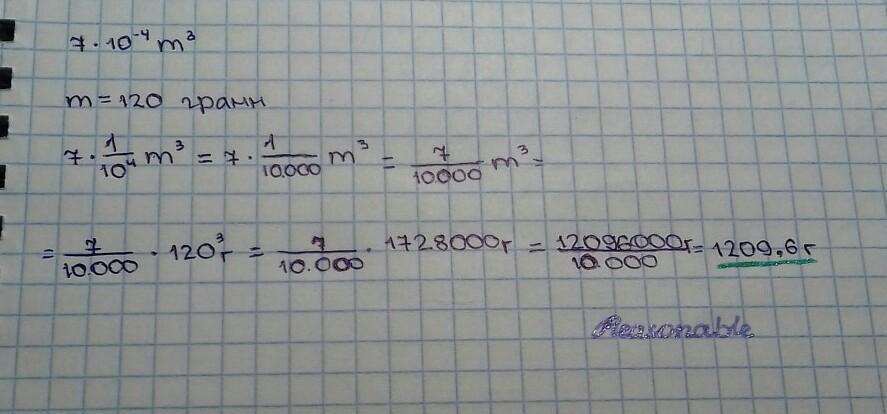 7 · 10⁻⁴ m³
m = 120 грамм
7 · 1/10⁴ m³ = 7 · 1/10.000 m³ = 7/10000 m³ =
= 7/10.000 · 120³г = 7/10.000 · 1728000г = 12096000г/10.000 = 1209,6г
Reasonable